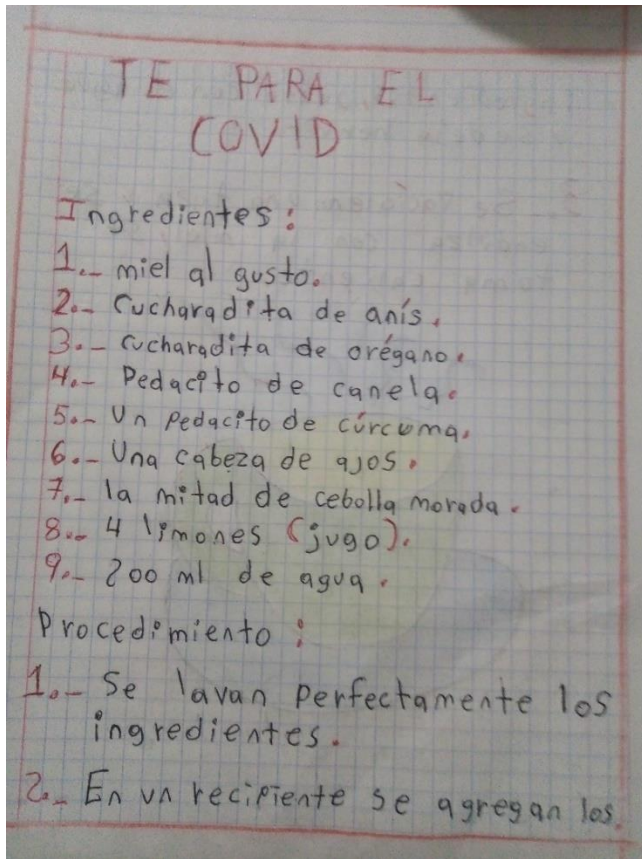 TE PARA EL
COVID
Ingredientes:
1.- miel al gusto.
2.- Cucharadita de anís.
3.- cucharadita de orégano.
4.- Pedacito de canela.
5.- Un pedacito de cúrcuma.
6.- Una cabeza de ajos.
7.- la mitad de cebolla morada.
8.- 4 limones (jugo).
9.- 200 ml de agua.
Procedimiento:
1.- Se lavan perfectamente los
ingredientes.
2.- En un recipiente se agregan los